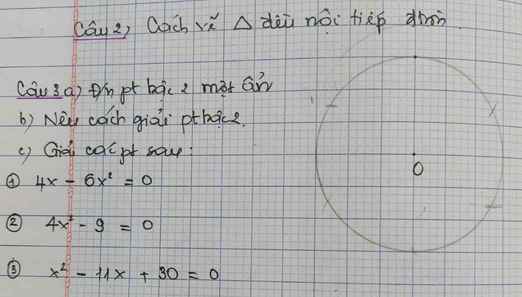 Câu 2) Cách vẽ △ đều nội tiếp đtròn
Câu 3 a) Đ/n pt bậc 2 một ẩn
b) Nêu cách giải pt bậc 2.
c) Giải các pt sau:
① 4x - 6x² = 0
② 4x² - 9 = 0
③ x² - 11x + 30 = 0
O